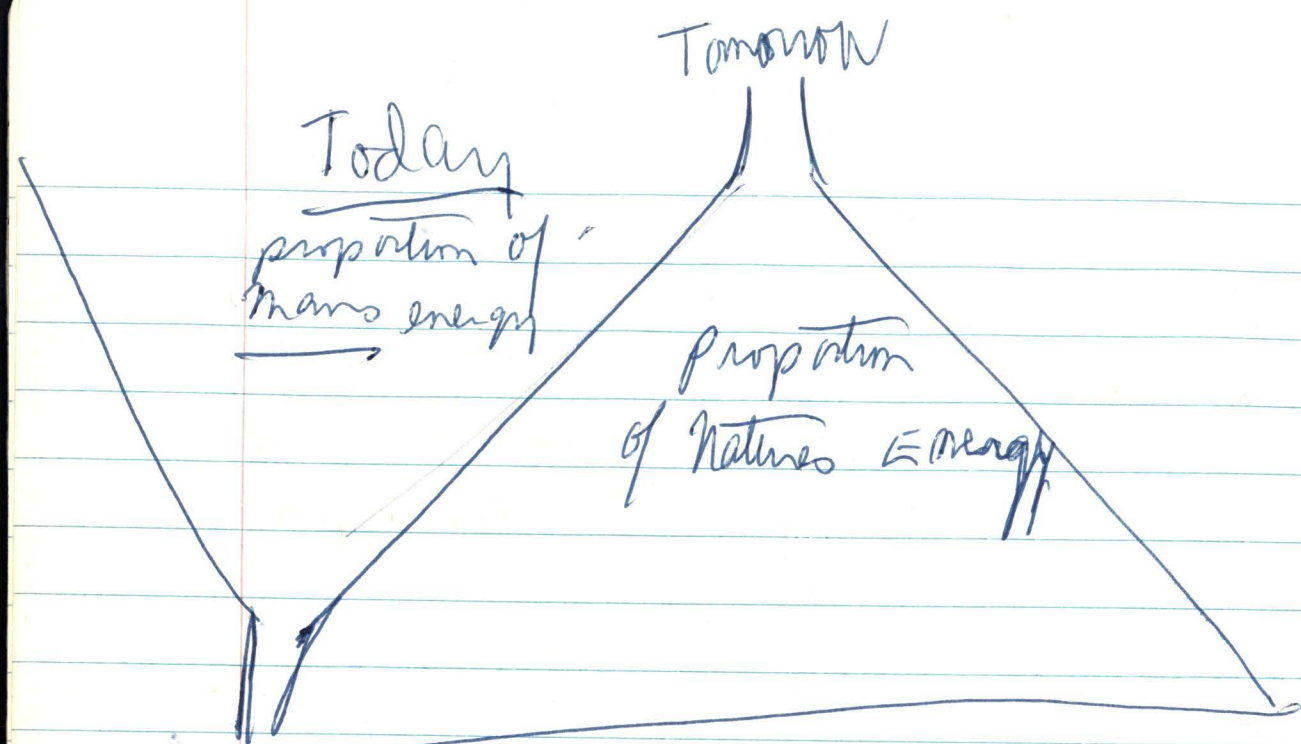 Tomorrow
Today
proportion of
mans energy
Proportion
of Natures Energy